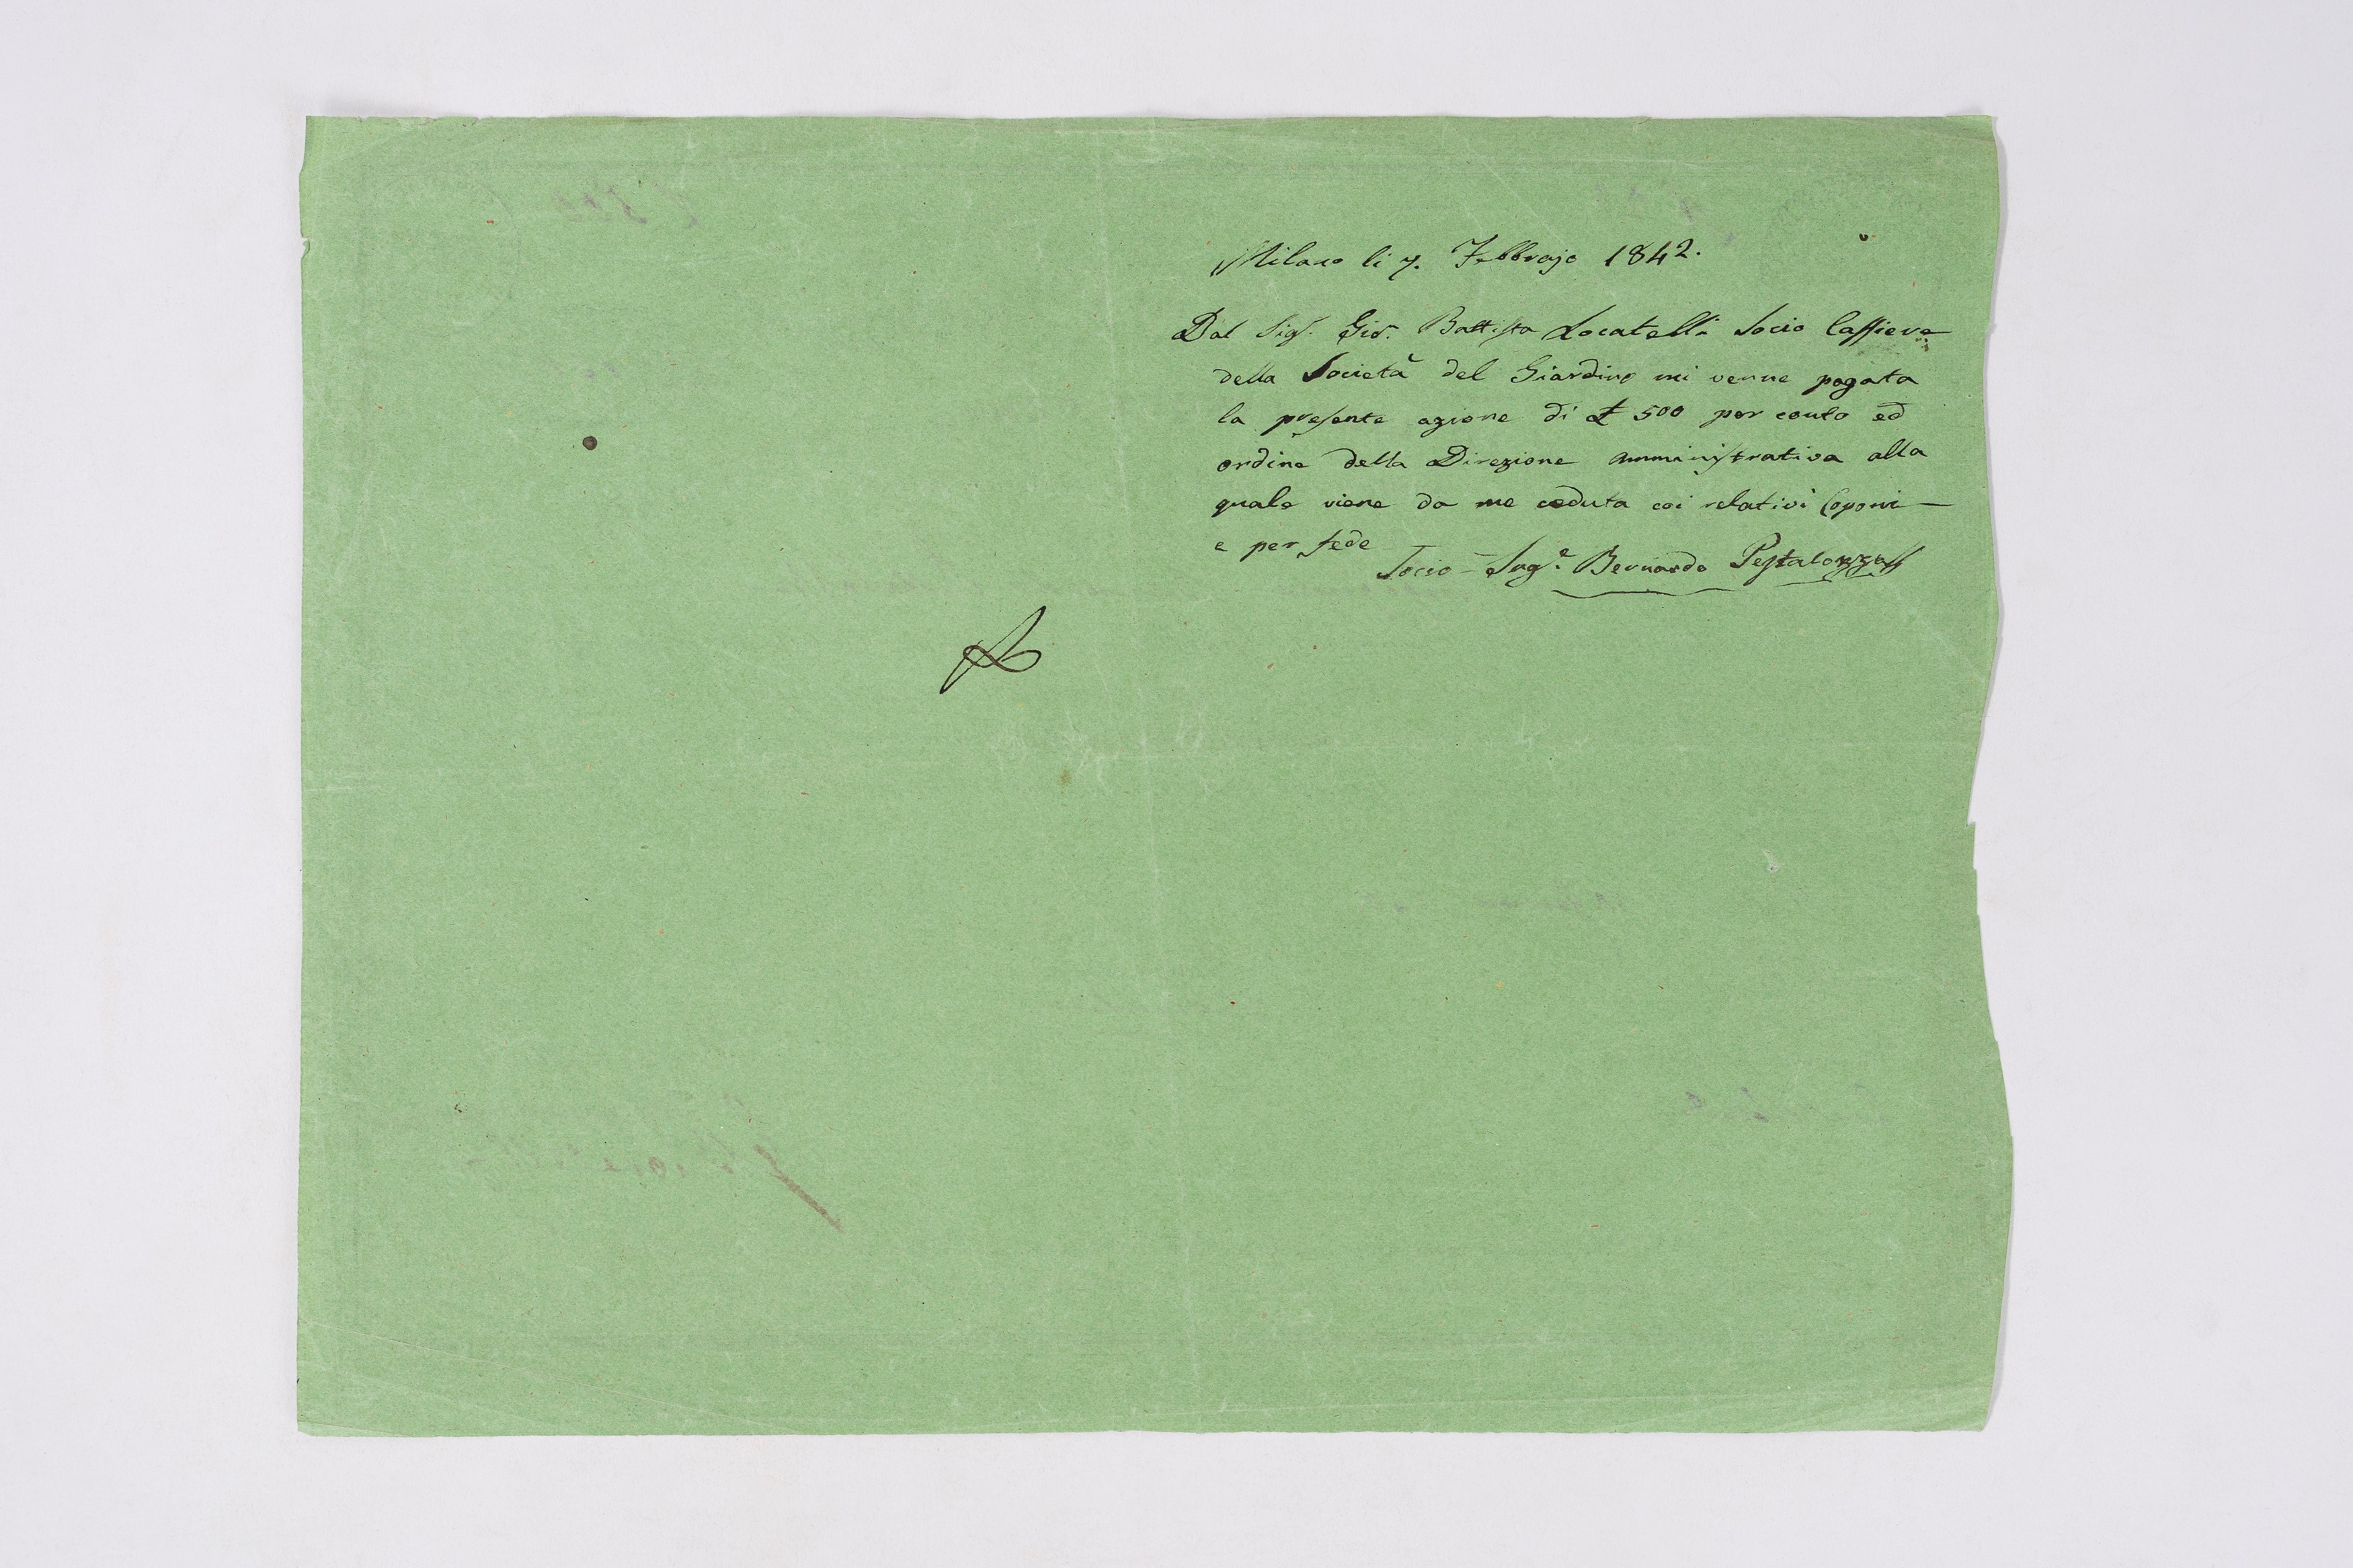 Milano li 7. Febbrajo 1842.
Dal Sigr. Gio. Battista Locatelli Socio Cassiere
della Società del Giardino mi venne pagata
la presente azione di £ 500 per conto ed
ordine della Direzione amministrativa alla
quale viene da me ceduta coi relativi Coponi —
e per fede
Socio - Inge. Bernardo Pestalozza